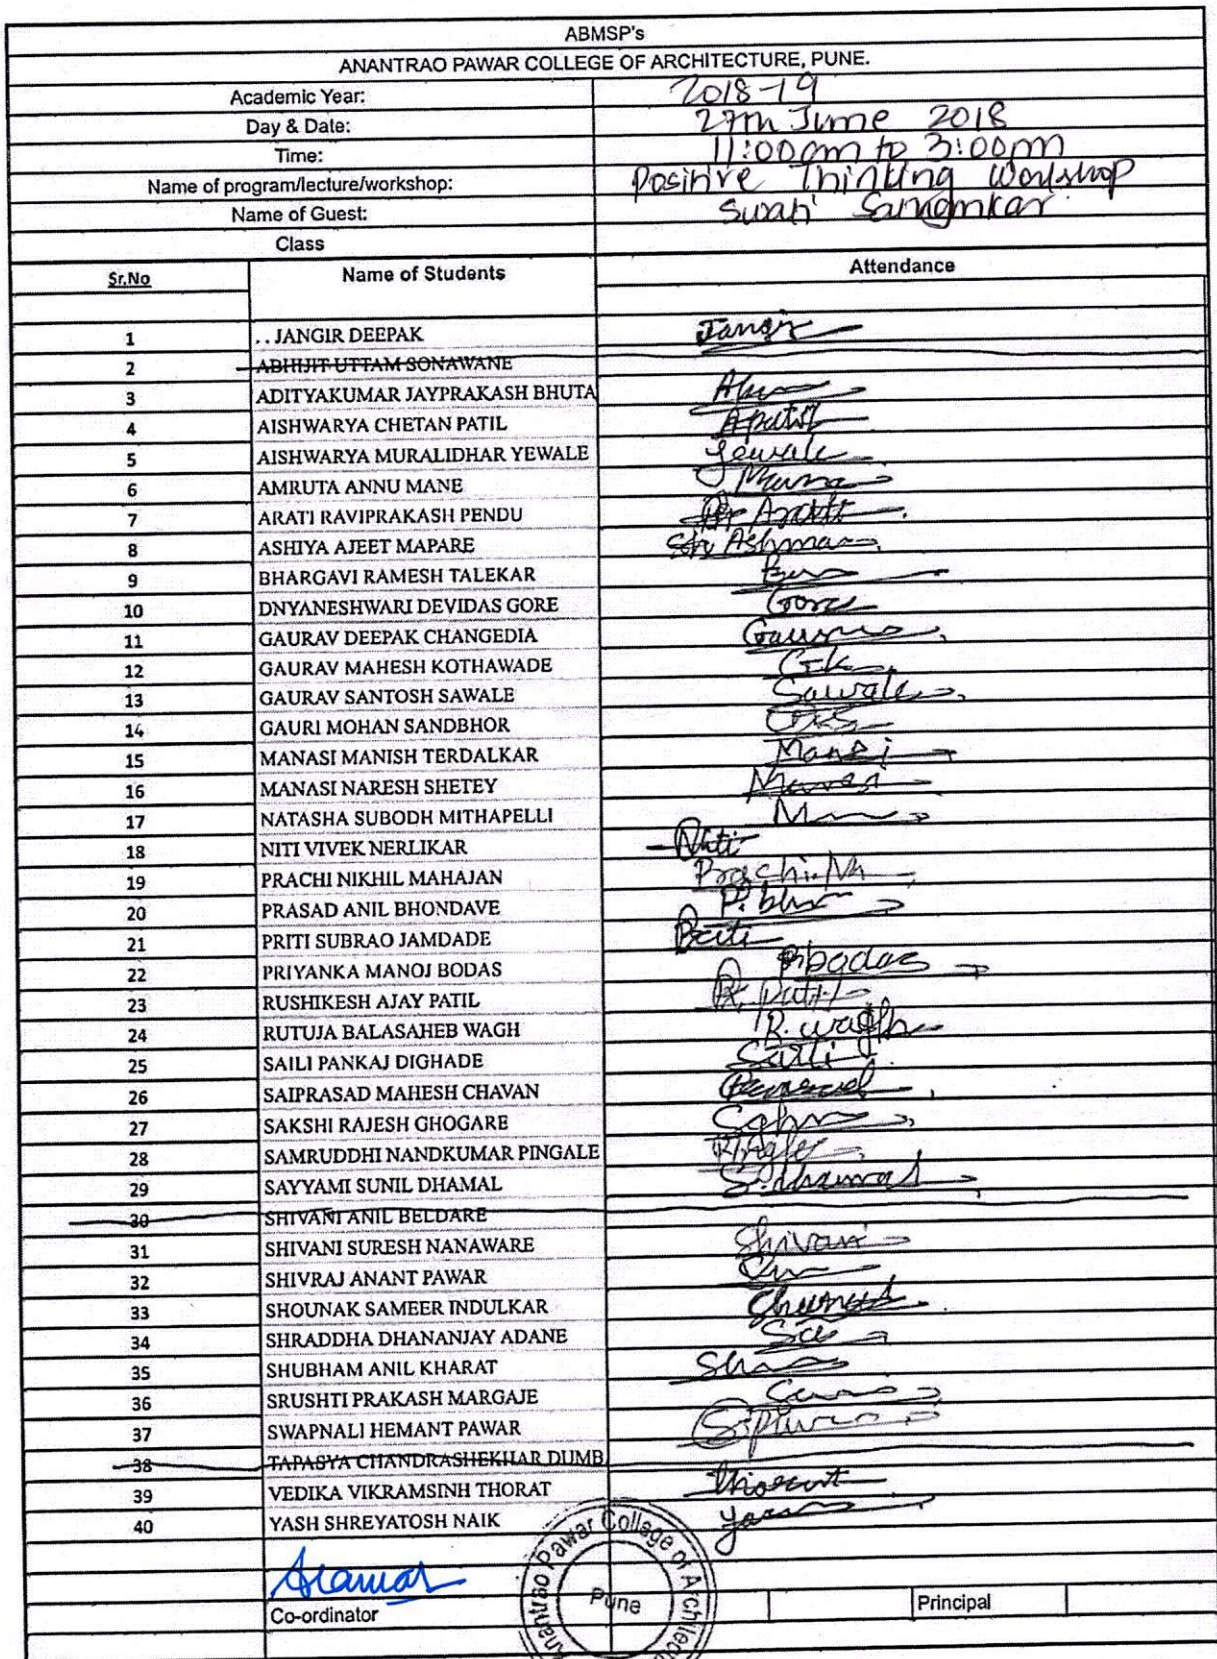 ABMSP's
ANANTRAO PAWAR COLLEGE OF ARCHITECTURE, PUNE.
Academic Year: 2018-19
Day & Date: 27th June 2018
Time: 11:00am to 3:00pm
Name of program/lecture/workshop: Positive Thinking Workshop
Name of Guest: Swati
Class
Sr.No Name of Students Attendance
1 . . JANGIR DEEPAK Jangir
2 ABHIJIT UTTAM SONAWANE
3 ADITYAKUMAR JAYPRAKASH BHUTA
4 AISHWARYA CHETAN PATIL Apatil
5 AISHWARYA MURALIDHAR YEWALE Yewale
6 AMRUTA ANNU MANE
7 ARATI RAVIPRAKASH PENDU
8 ASHIYA AJEET MAPARE
9 BHARGAVI RAMESH TALEKAR
10 DNYANESHWARI DEVIDAS GORE Gore
11 GAURAV DEEPAK CHANGEDIA
12 GAURAV MAHESH KOTHAWADE
13 GAURAV SANTOSH SAWALE Sawale
14 GAURI MOHAN SANDBHOR
15 MANASI MANISH TERDALKAR
16 MANASI NARESH SHETEY
17 NATASHA SUBODH MITHAPELLI
18 NITI VIVEK NERLIKAR Niti
19 PRACHI NIKHIL MAHAJAN
20 PRASAD ANIL BHONDAVE
21 PRITI SUBRAO JAMDADE Priti
22 PRIYANKA MANOJ BODAS
23 RUSHIKESH AJAY PATIL R. Patil
24 RUTUJA BALASAHEB WAGH R. wagh
25 SAILI PANKAJ DIGHADE Saili
26 SAIPRASAD MAHESH CHAVAN
27 SAKSHI RAJESH GHOGARE
28 SAMRUDDHI NANDKUMAR PINGALE
29 SAYYAMI SUNIL DHAMAL S. Dhamal
30 SHIVANI ANIL BELDARE
31 SHIVANI SURESH NANAWARE Shivani
32 SHIVRAJ ANANT PAWAR
33 SHOUNAK SAMEER INDULKAR
34 SHRADDHA DHANANJAY ADANE
35 SHUBHAM ANIL KHARAT
36 SRUSHTI PRAKASH MARGAJE
37 SWAPNALI HEMANT PAWAR
38 TAPASYA CHANDRASHEKHAR DUMB
39 VEDIKA VIKRAMSINH THORAT Thorat
40 YASH SHREYATOSH NAIK
Anantrao Pawar College of Architec
Pune
Co-ordinator Principal